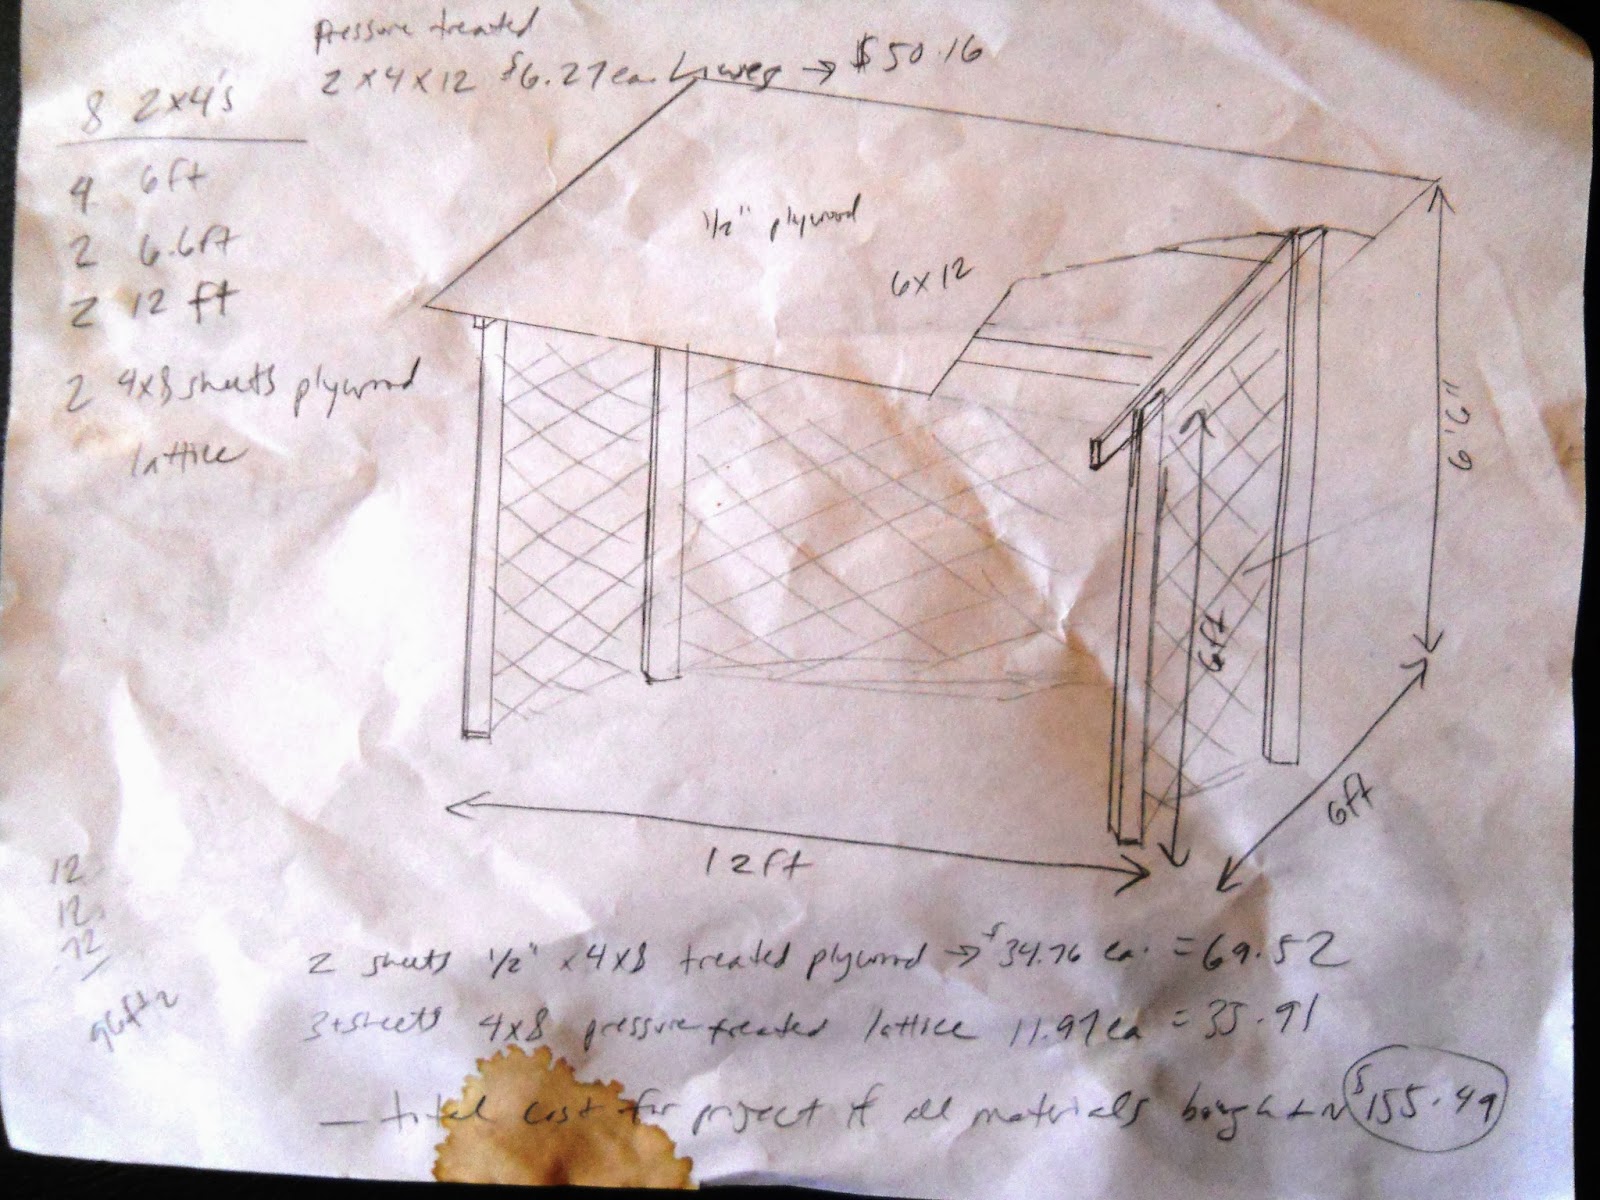 Pressure treated
2x4x12 $6.27 ea. Lowes → $50.16
8 2x4's
4 6ft
2 6.6ft
2 12 ft
2 4x8 sheets plywood
lattice
1/2" plywood
6x12
6'6"
6ft
6ft
12ft
12
12
72
96ft2
2 sheets 1/2" x4x8 treated plywood → $34.76 ea. = 69.52
3 sheets 4x8 pressure treated lattice 11.97 ea = 35.91
— total cost for project if all materials bought $155.49